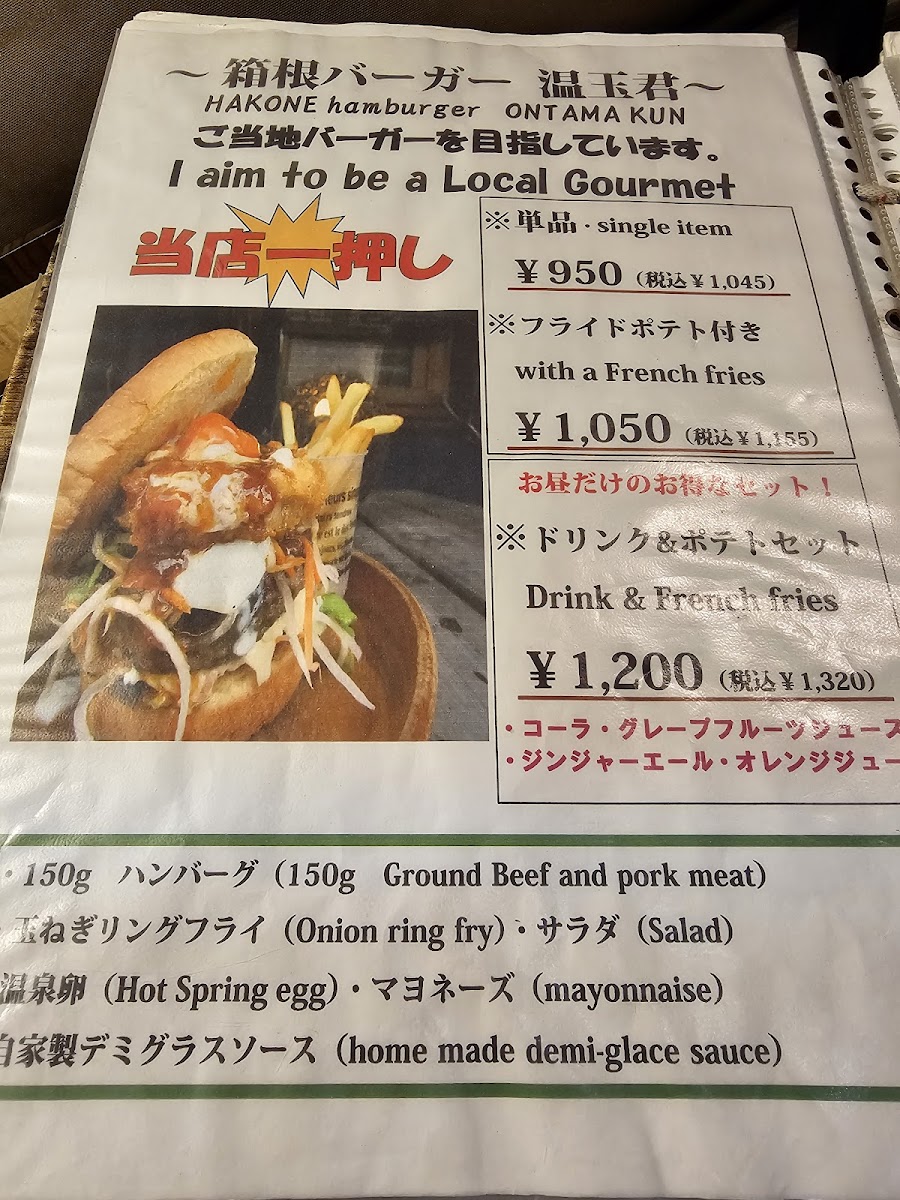 ～箱根バーガー 温玉君～
HAKONE hamburger ONTAMA KUN
ご当地バーガーを目指しています。
I aim to be a Local Gourmet
当店一押し
※単品・single item
￥950（税込￥1,045）
※フライドポテト付き
with a French fries
￥1,050（税込￥1,155）
お昼だけのお得なセット！
※ドリンク&ポテトセット
Drink & French fries
￥1,200（税込￥1,320）
・コーラ・グレープフルーツジュース
・ジンジャーエール・オレンジジュー
・150g ハンバーグ（150g Ground Beef and pork meat）
玉ねぎリングフライ（Onion ring fry）・サラダ（Salad）
温泉卵（Hot Spring egg）・マヨネーズ（mayonnaise）
自家製デミグラスソース（home made demi-glace sauce）